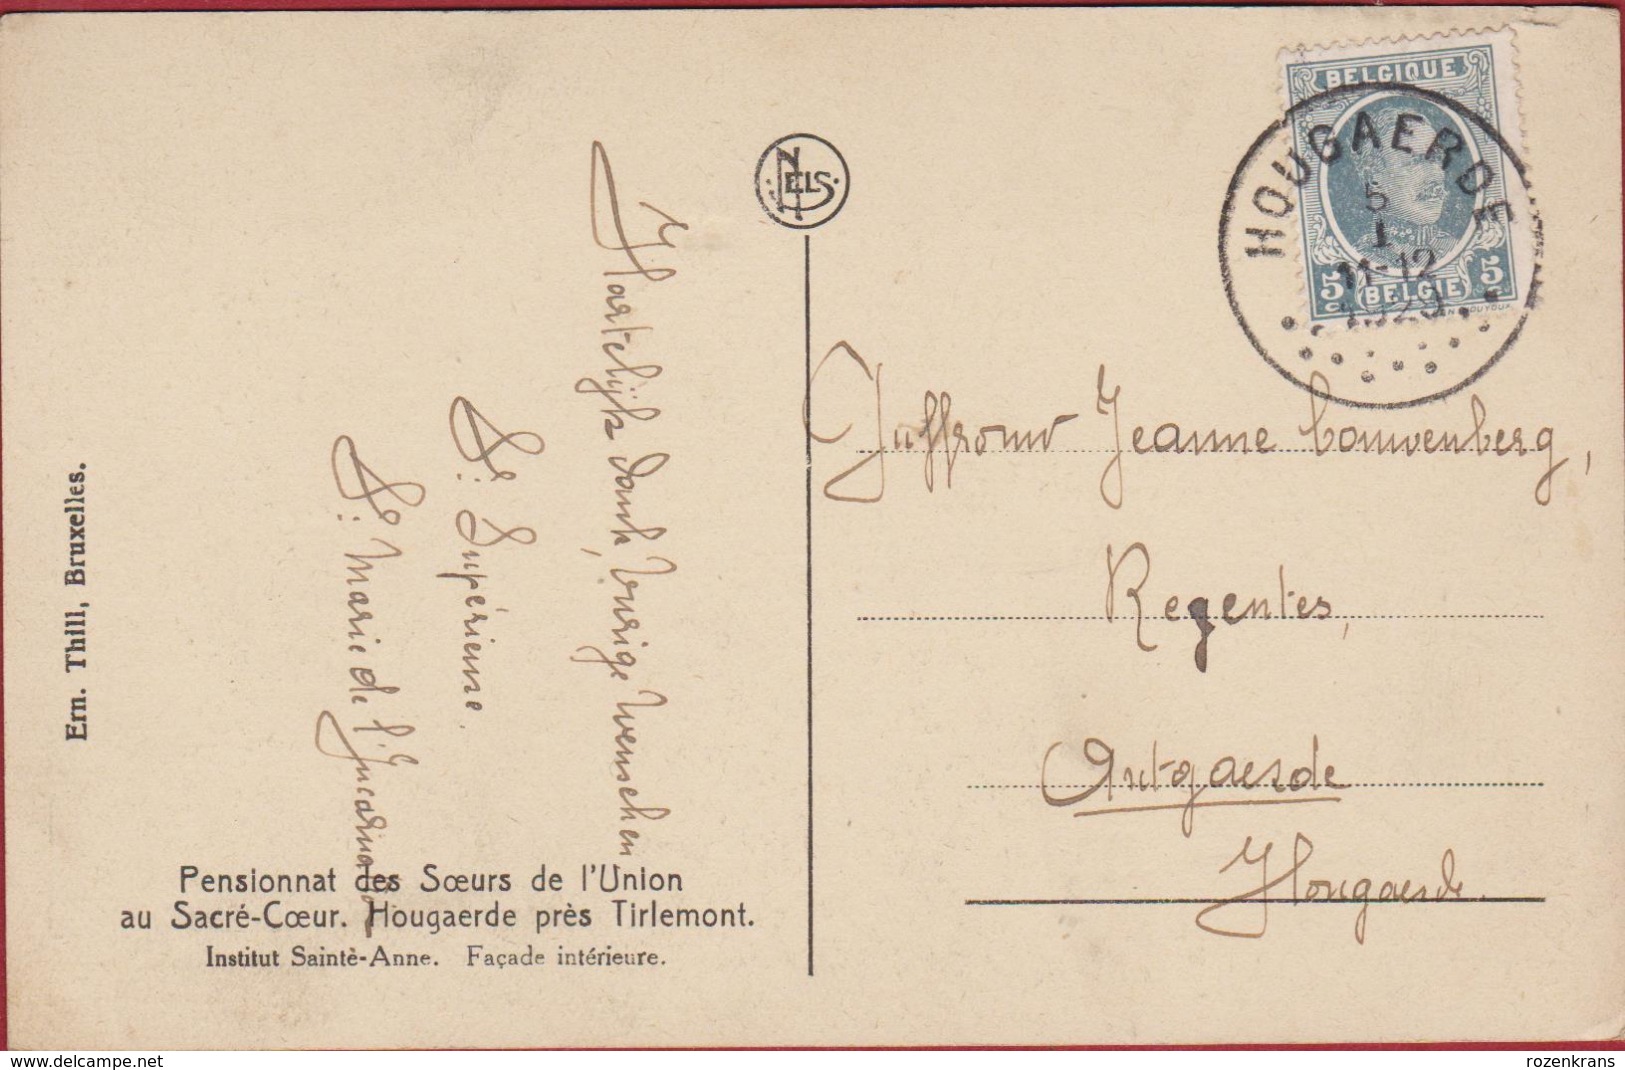 BELGIQUE
5c 5c
BELGIE
HOUGAERDE
5
1
11-12
1929
NELS
Hartelijk dank, vurige wenschen
Sr. Supérieure.
Sr. Marie de l'Incarnation
Ern. Thill, Bruxelles.
Juffrouw Jeanne Couwenberg,
Regentes,
Outgaerde
Hougaerde.
Pensionnat des Sœurs de l'Union
au Sacré-Cœur. Hougaerde près Tirlemont.
Institut Sainte-Anne. Façade intérieure.
delcampe.net
rozenkrans